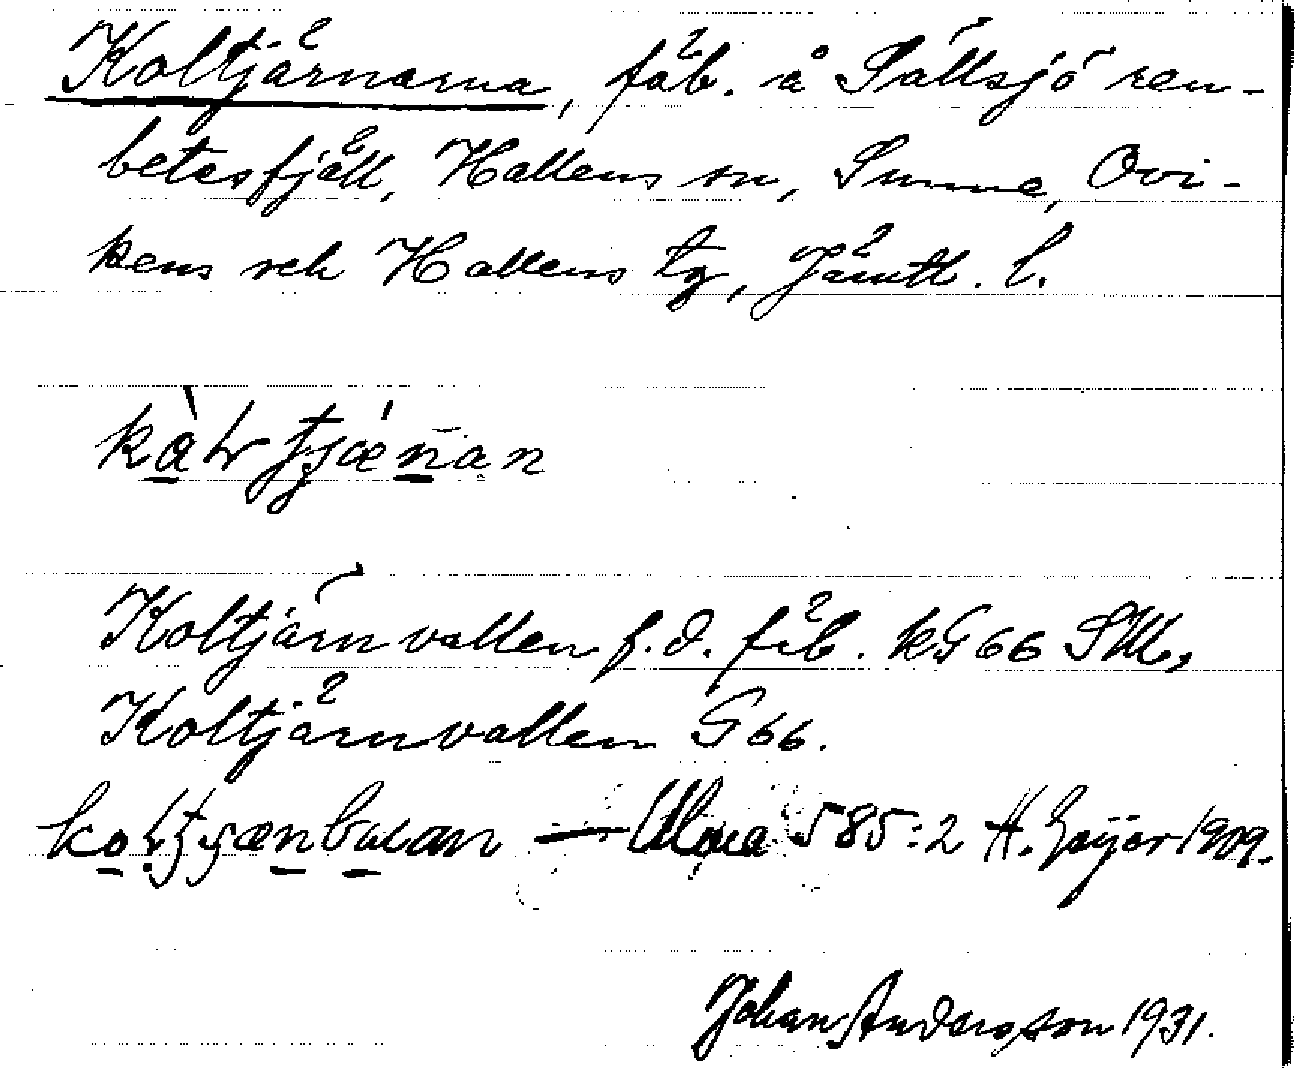 Koltjärnarna, fäb. å Sällsjö ren-
betesfjäll, Hallens sn, Sunne, Ovi-
kens och Hallens tg, Jämtl. l.
Koltjärnvallen f.d. fäb. kG 66 SV,
Koltjärnvallen G 66.
585:2 H. Geijer 1909.
Johan Andersson 1931.